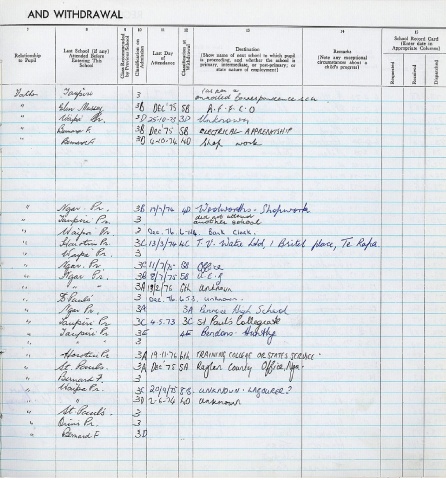 AND WITHDRAWAL
7 8 9 10 11 12 13 14 15
Relationship to Pupil
Last School (if any) Attended Before Entering This School
Class Recommended by Previous School
Classification on Admission
Last Day of Attendance
Classification at Withdrawal
Destination
(Show name of next school to which pupil is proceeding, and whether the school is primary, intermediate, or post-primary; or state nature of employment)
Remarks
(Note any exceptional circumstances about child's progress)
School Record Card
(Enter date in Appropriate Column)
Requested
Received
Father Taupiri 3 enrolled Correspondence Sch
" 3B DEC '75 5B A.F.F.C.O
" Waipa Pr. 3D 25-10-75 3D Unknown
" Bernard F. 3B DEC '75 5B ELECTRICAL APPRENTISHIP
" Bernard F. 3D 4D Shop work
" Ngar. Pr. 3B 4D Woolworths - Shopwork
" Taupiri Pr. 3 did not attend another school
" Waipa Pr. 3 Dec. 76 Bank Clerk.
" Huntly Pr. 3C 13/3/74 4C T.V. Wake Ltd, 1 Bristol place, Te Rapa
" Waipa Pr. 3
" Ngar. Pr. 3C 11/7/75 5B Office
" Ngar Pr. 3B 8/7/75 5B
" " 3A 6th unknown
" St Pauls' 3 Dec. 76 unknown.
" Ngar Pr. 3A 3A Penrose High School
" Taupiri Pr. 3C 4.5.73 3C St Paul's Collegiate
" Taupiri Pr. 3E 4E Bendons Huntly
" 3
" Huntly Pr. 3A 19-11-76 6th TRAINING COLLEGE OR STATE SERVICE
" St. Pauls. 3A DEC '75 5A Raglan County Office, Nga.
" Bernard F. 3
" Waipa Pr. 3E 20/9/75 5B. UNKNOWN - LABOURER?
" " 3D 2-6-74 4D unknown
" St Paul's. 3
" Orini Pr. 3
" Bernard F. 3D